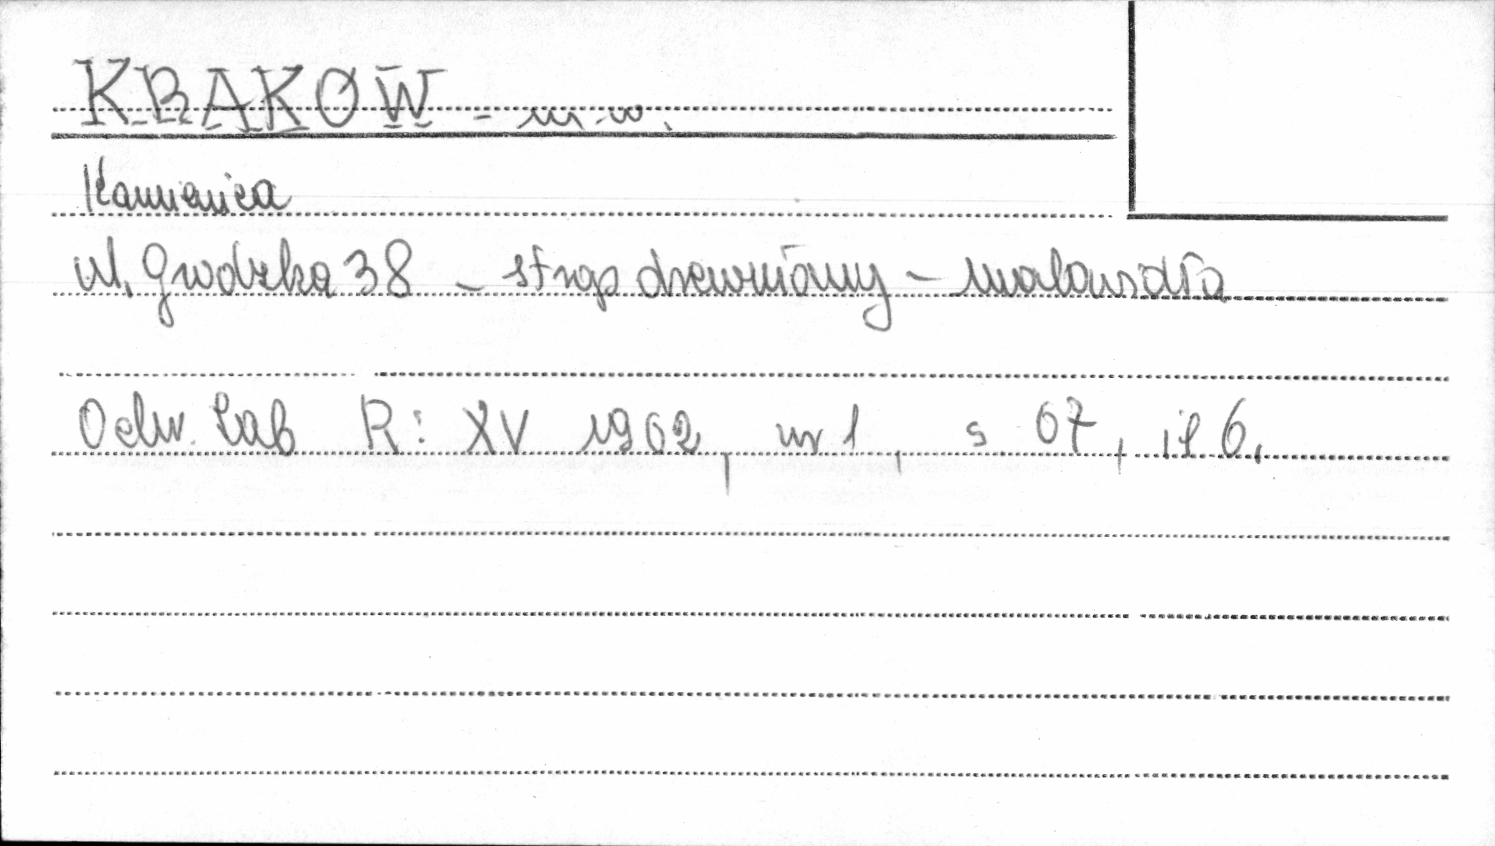 KRAKÓW - m. w.
Kamienica
ul. Grodzka 38 – strop drewniany – malowidła
Ochr. Zab R: XV 1962, nr 1, s 67, il 6.